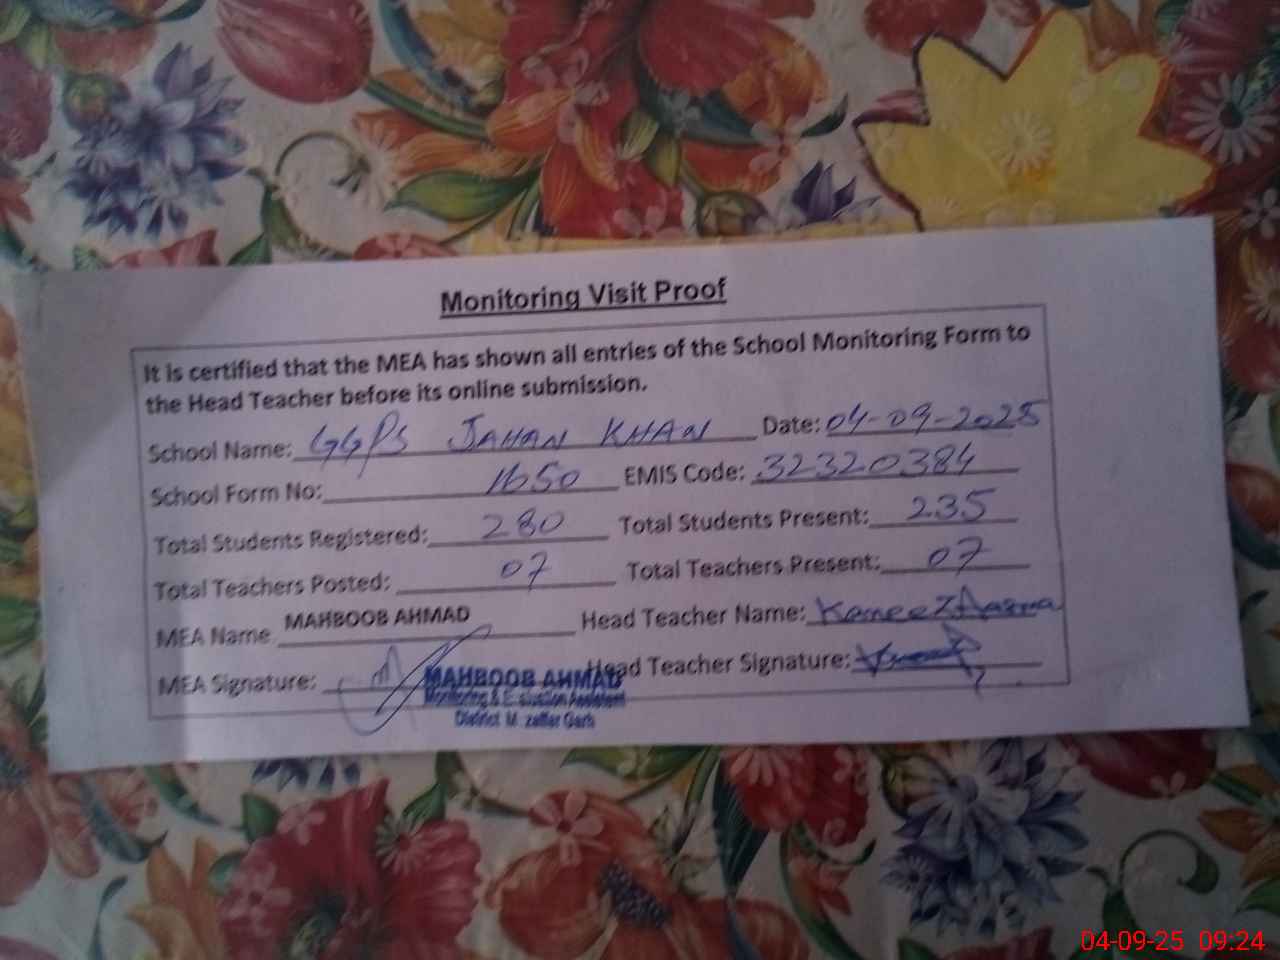 Monitoring Visit Proof
It is certified that the MEA has shown all entries of the School Monitoring Form to
the Head Teacher before its online submission.
School Name: GGPS JAHAN KHAN Date: 04-09-2025
School Form No: 1650 EMIS Code: 32320384
Total Students Registered: 280 Total Students Present: 235
Total Teachers Posted: 07 Total Teachers Present: 07
MEA Name MAHBOOB AHMAD Head Teacher Name: Kaneez Aasma
MEA Signature: Head Teacher Signature:
MAHBOOB AHMAD
Monitoring & Evaluation Assistent
District M zaffar Garh
04-09-25 09:24